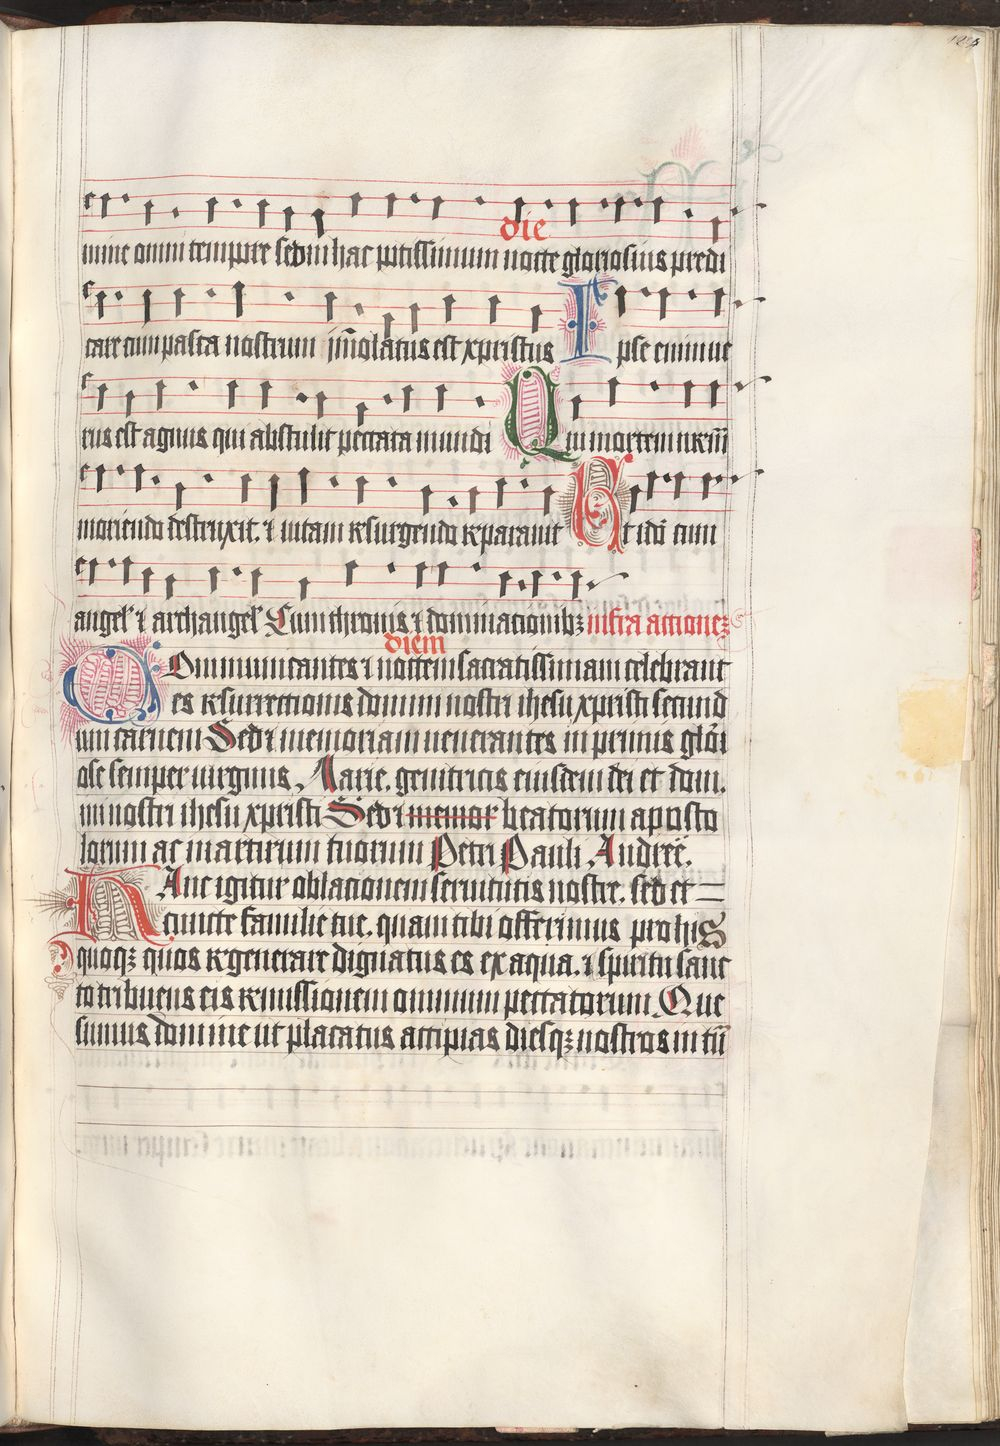 die
mine omni tempore sed in hac potissimum nocte gloriosius predi
care cum pasca nostrum im̄molatus est xpristus Ipse enim ue
rus est agnus qui abstulit peccata mundi Qui mortem nr̄am
moriendo destruxit. ⁊ uitam resurgendo reparauit Et ideo cum
angel' ⁊ archangel' Cum thronis ⁊ dominacionibꝫ infra actionē
diem
Communicantes ⁊ noctem sacratissimam celebrant
es resurrectionis domini nostri ihesu xpristi secund
um carnem Sed ⁊ memoriam uenerantes in primis glōi
ose semper uirginis Marie. genitricis eiusdem dei et dom.
mi nostri ihesu xpristi Sed ⁊ memor beatorum aposto
lorum ac martirum tuorum Petri Pauli Andree.
Hanc igitur oblacionem seruitutis nostre. sed et
cuncte familie tue. quam tibi offerimus pro his
quoqꝫ quos regenerare dignatus es ex aqua. ⁊ spiritu sanc
to tribuens eis remissionem omnium peccatorum. Que
sumus domine ut placatus accipias diesqꝫ nostros in tū